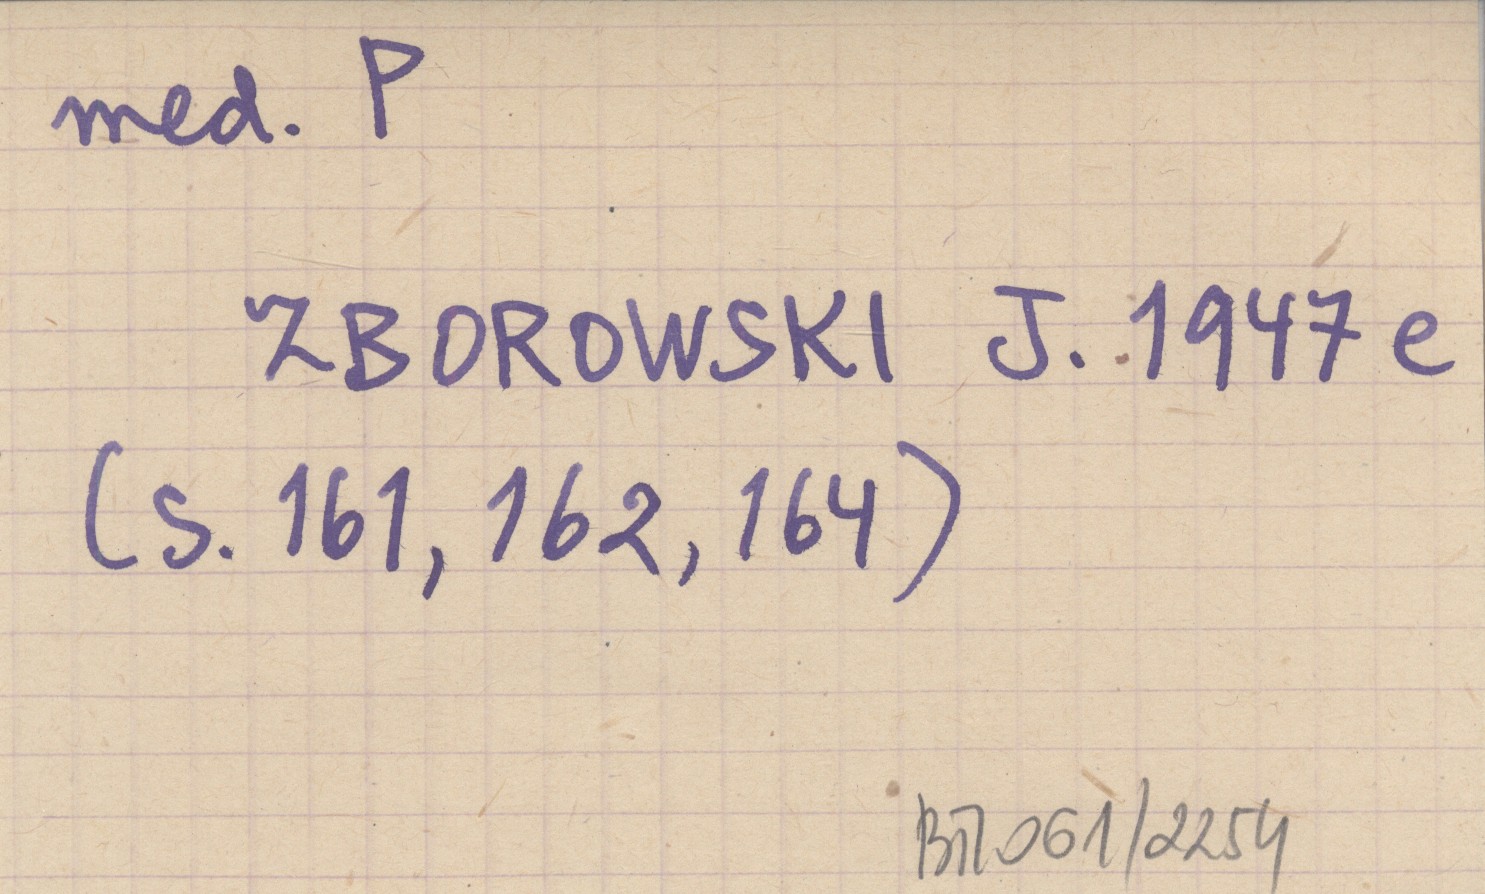 med. P
ZBOROWSKI J. 1947 e
(s. 161, 162, 164)
061/2254